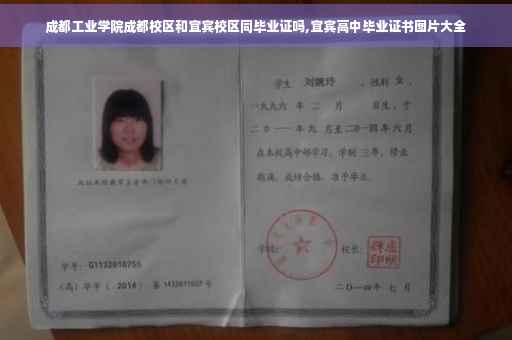 成都工业学院成都校区和宜宾校区同毕业证吗,宜宾高中毕业证书图片大全
学生 刘婉玲 ,性别 女 ,
一九九六 年 二 月 日生,于
二〇一一年九 月至二〇一四年六月
在本校高中部学习,学制 三年,修业
期满,成绩合格,准予毕业。
学号:G1132010755
学校: 校长:
(高)毕字( 2014 )第1432011027 号
二〇一四年 七 月